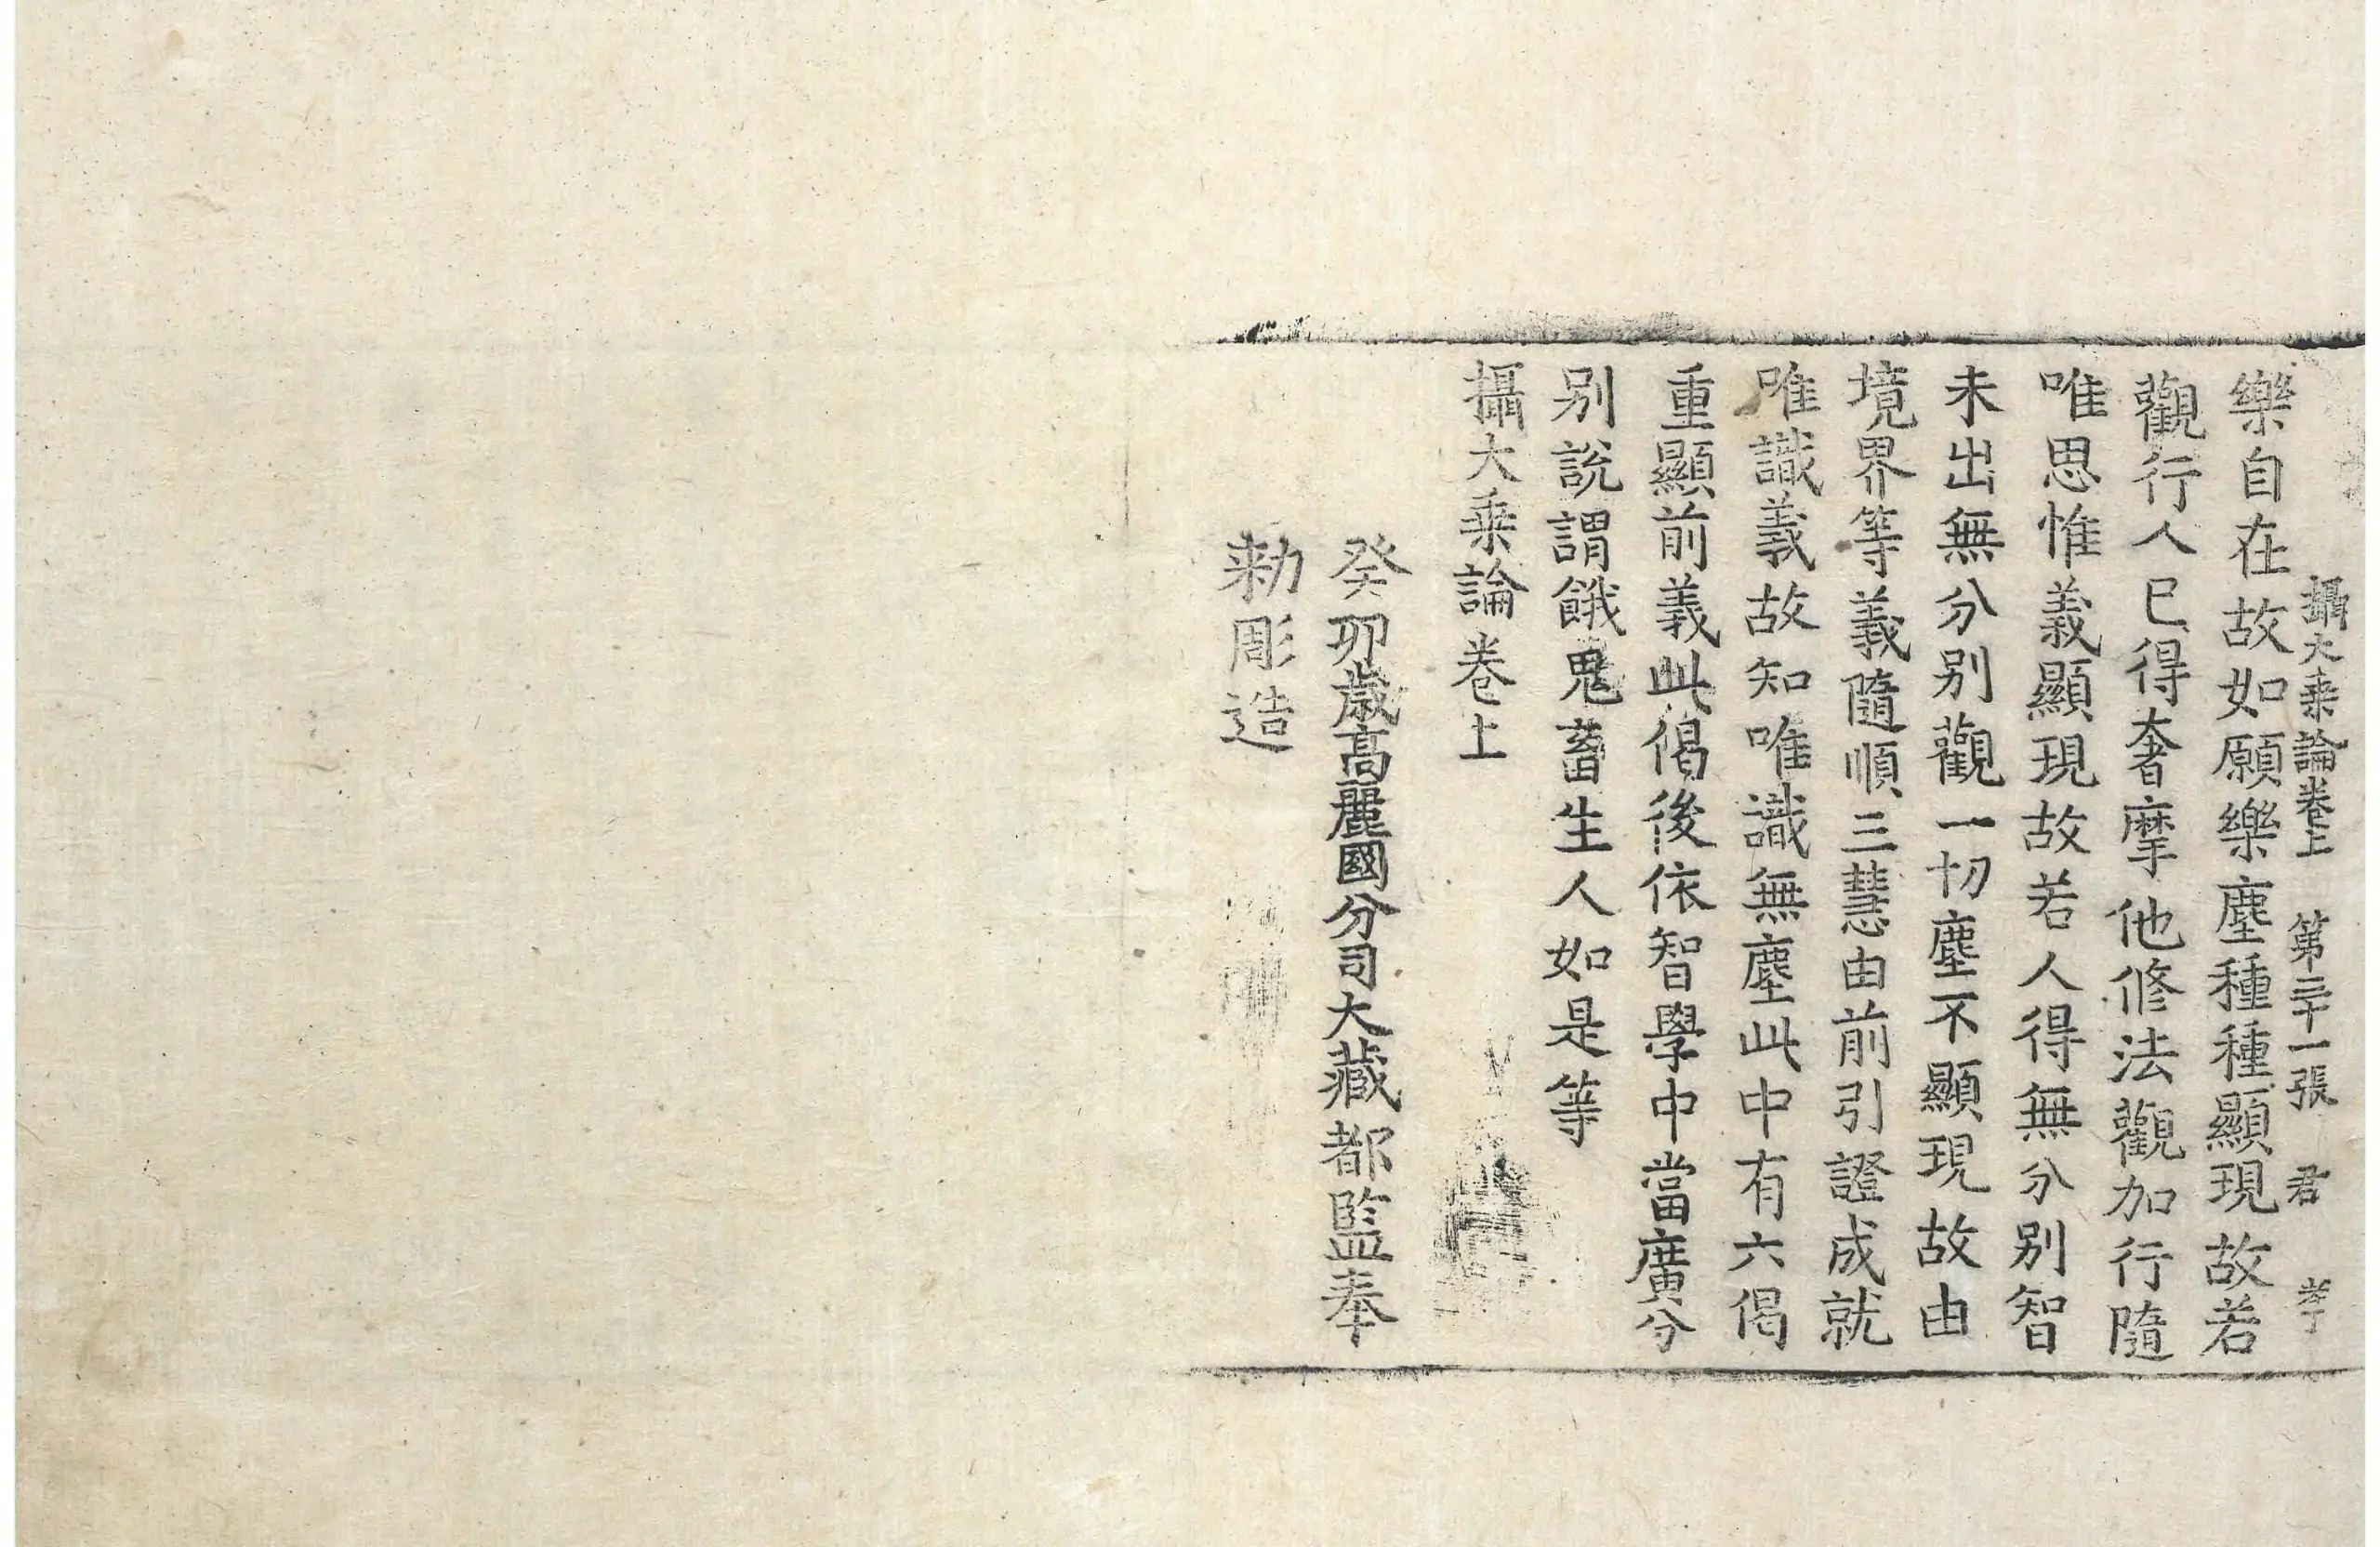 攝大乗論卷上 第三十一張 君
樂自在故如願樂塵種種顯現故若
觀行人已得奢摩他修法觀加行隨
唯思惟義顯現故若人得無分別智
未出無分別觀一切塵不顯現故由
境界等義隨順三慧由前引證成就
唯識義故知唯識無塵此中有六偈
重顯前義此偈後依智學中當廣分
別說謂餓鬼畜生人如是等
攝大乗論卷上
癸卯歳高麗國分司大藏都監奉
勑彫造